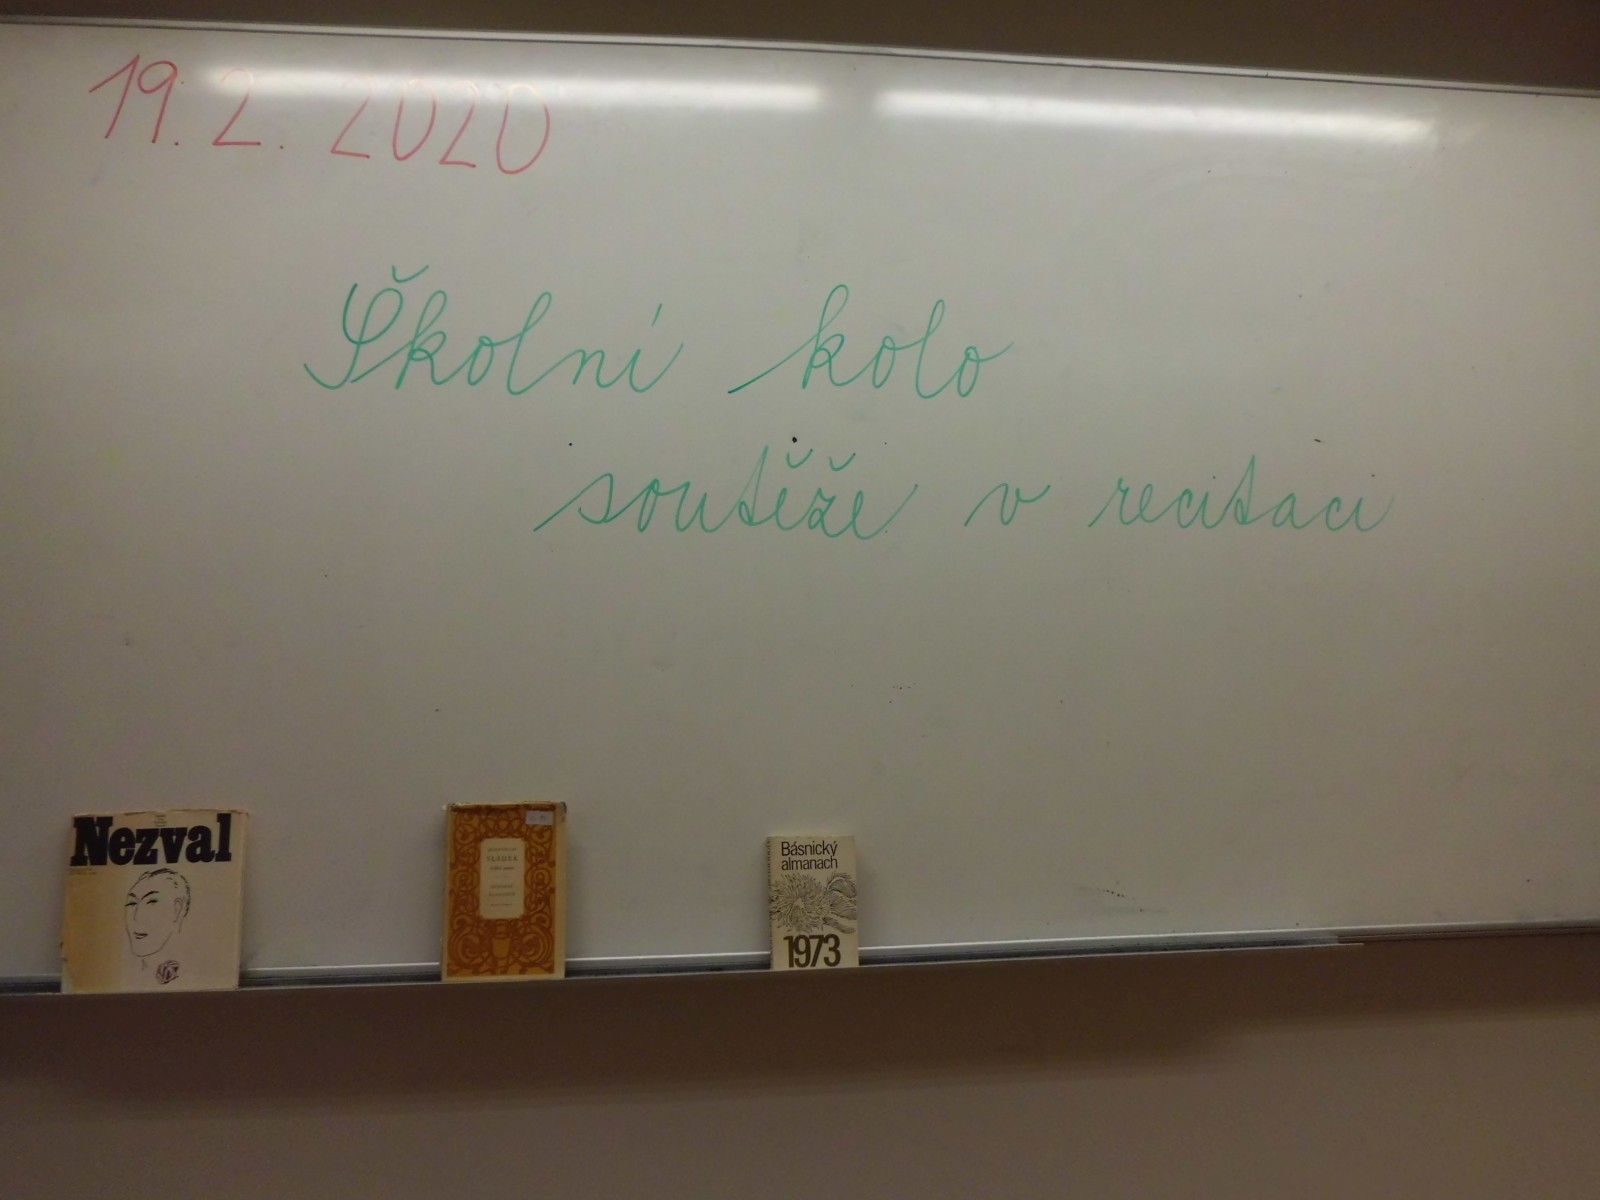 19. 2. 2020
Školní kolo
soutěže v recitaci
Nezval
SLÁDEK
Básnický
almanach
1973